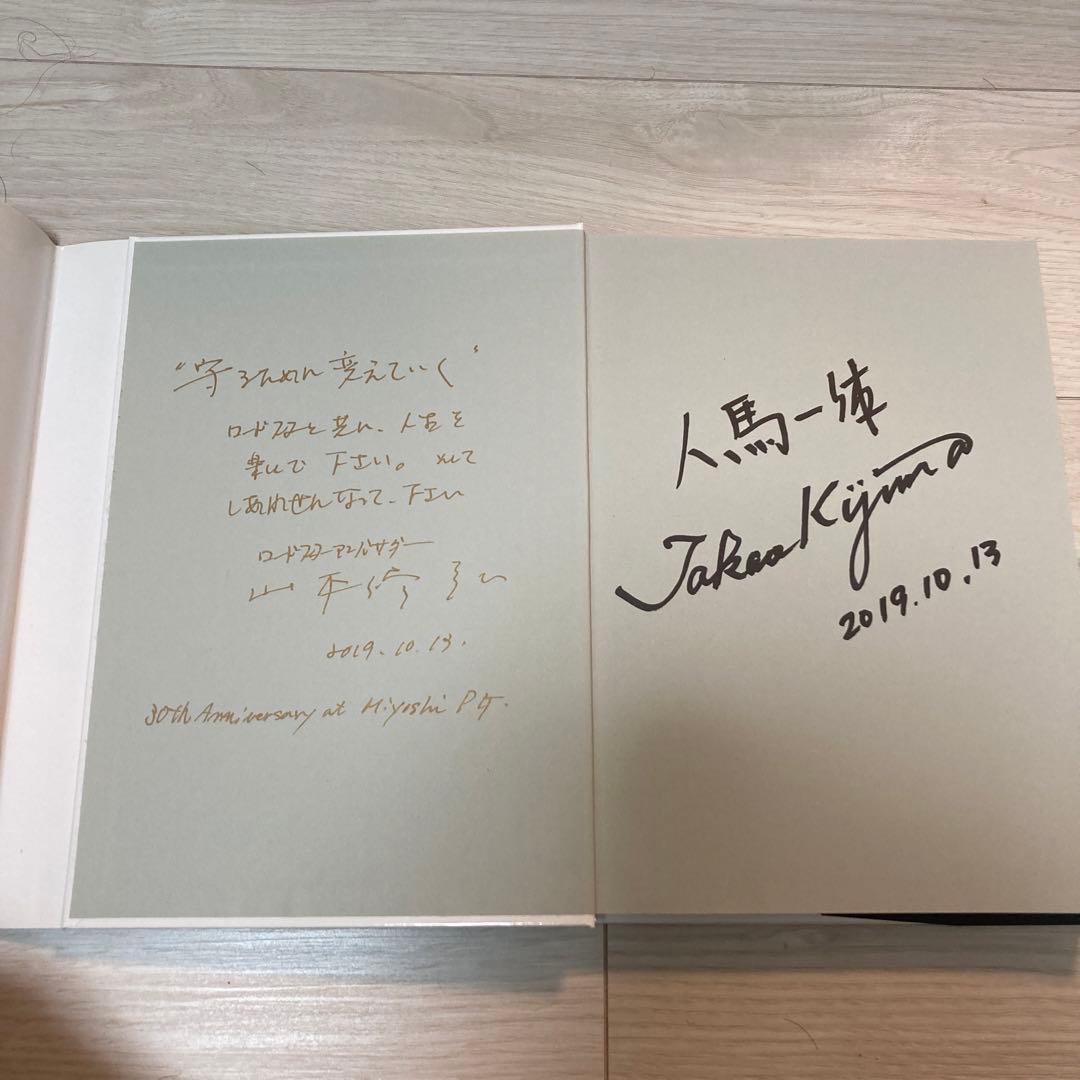 "守るために変えていく"
ロードスターと共に、人生を
楽しんで下さい。そして
しあわせになって下さい
ロードスターアンバサダー
山本修弘
2019.10.13.
30th Anniversary at Miyoshi P.G.
人馬一体
Takao Kijima
2019.10.13